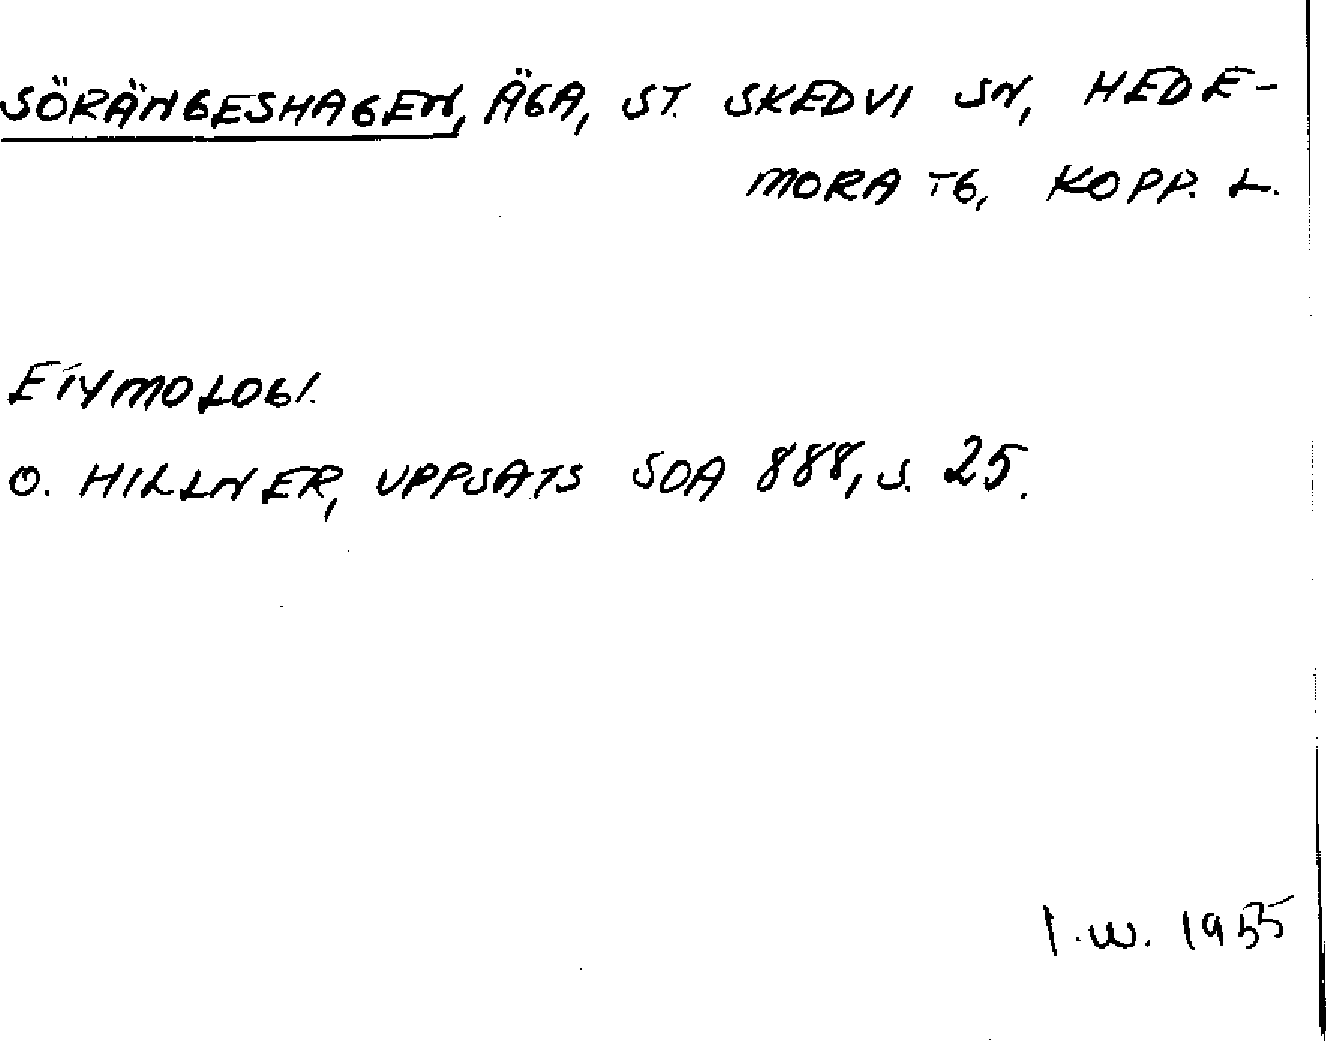 SÖRÄNGESHAGEN, ÄGA, ST. SKEDVI SN, HEDE-
MORA TG, KOPP. L.
ETYMOLOGI.
O. HILLNER, UPPSATS SOA 888, S. 25.
I.W. 1955